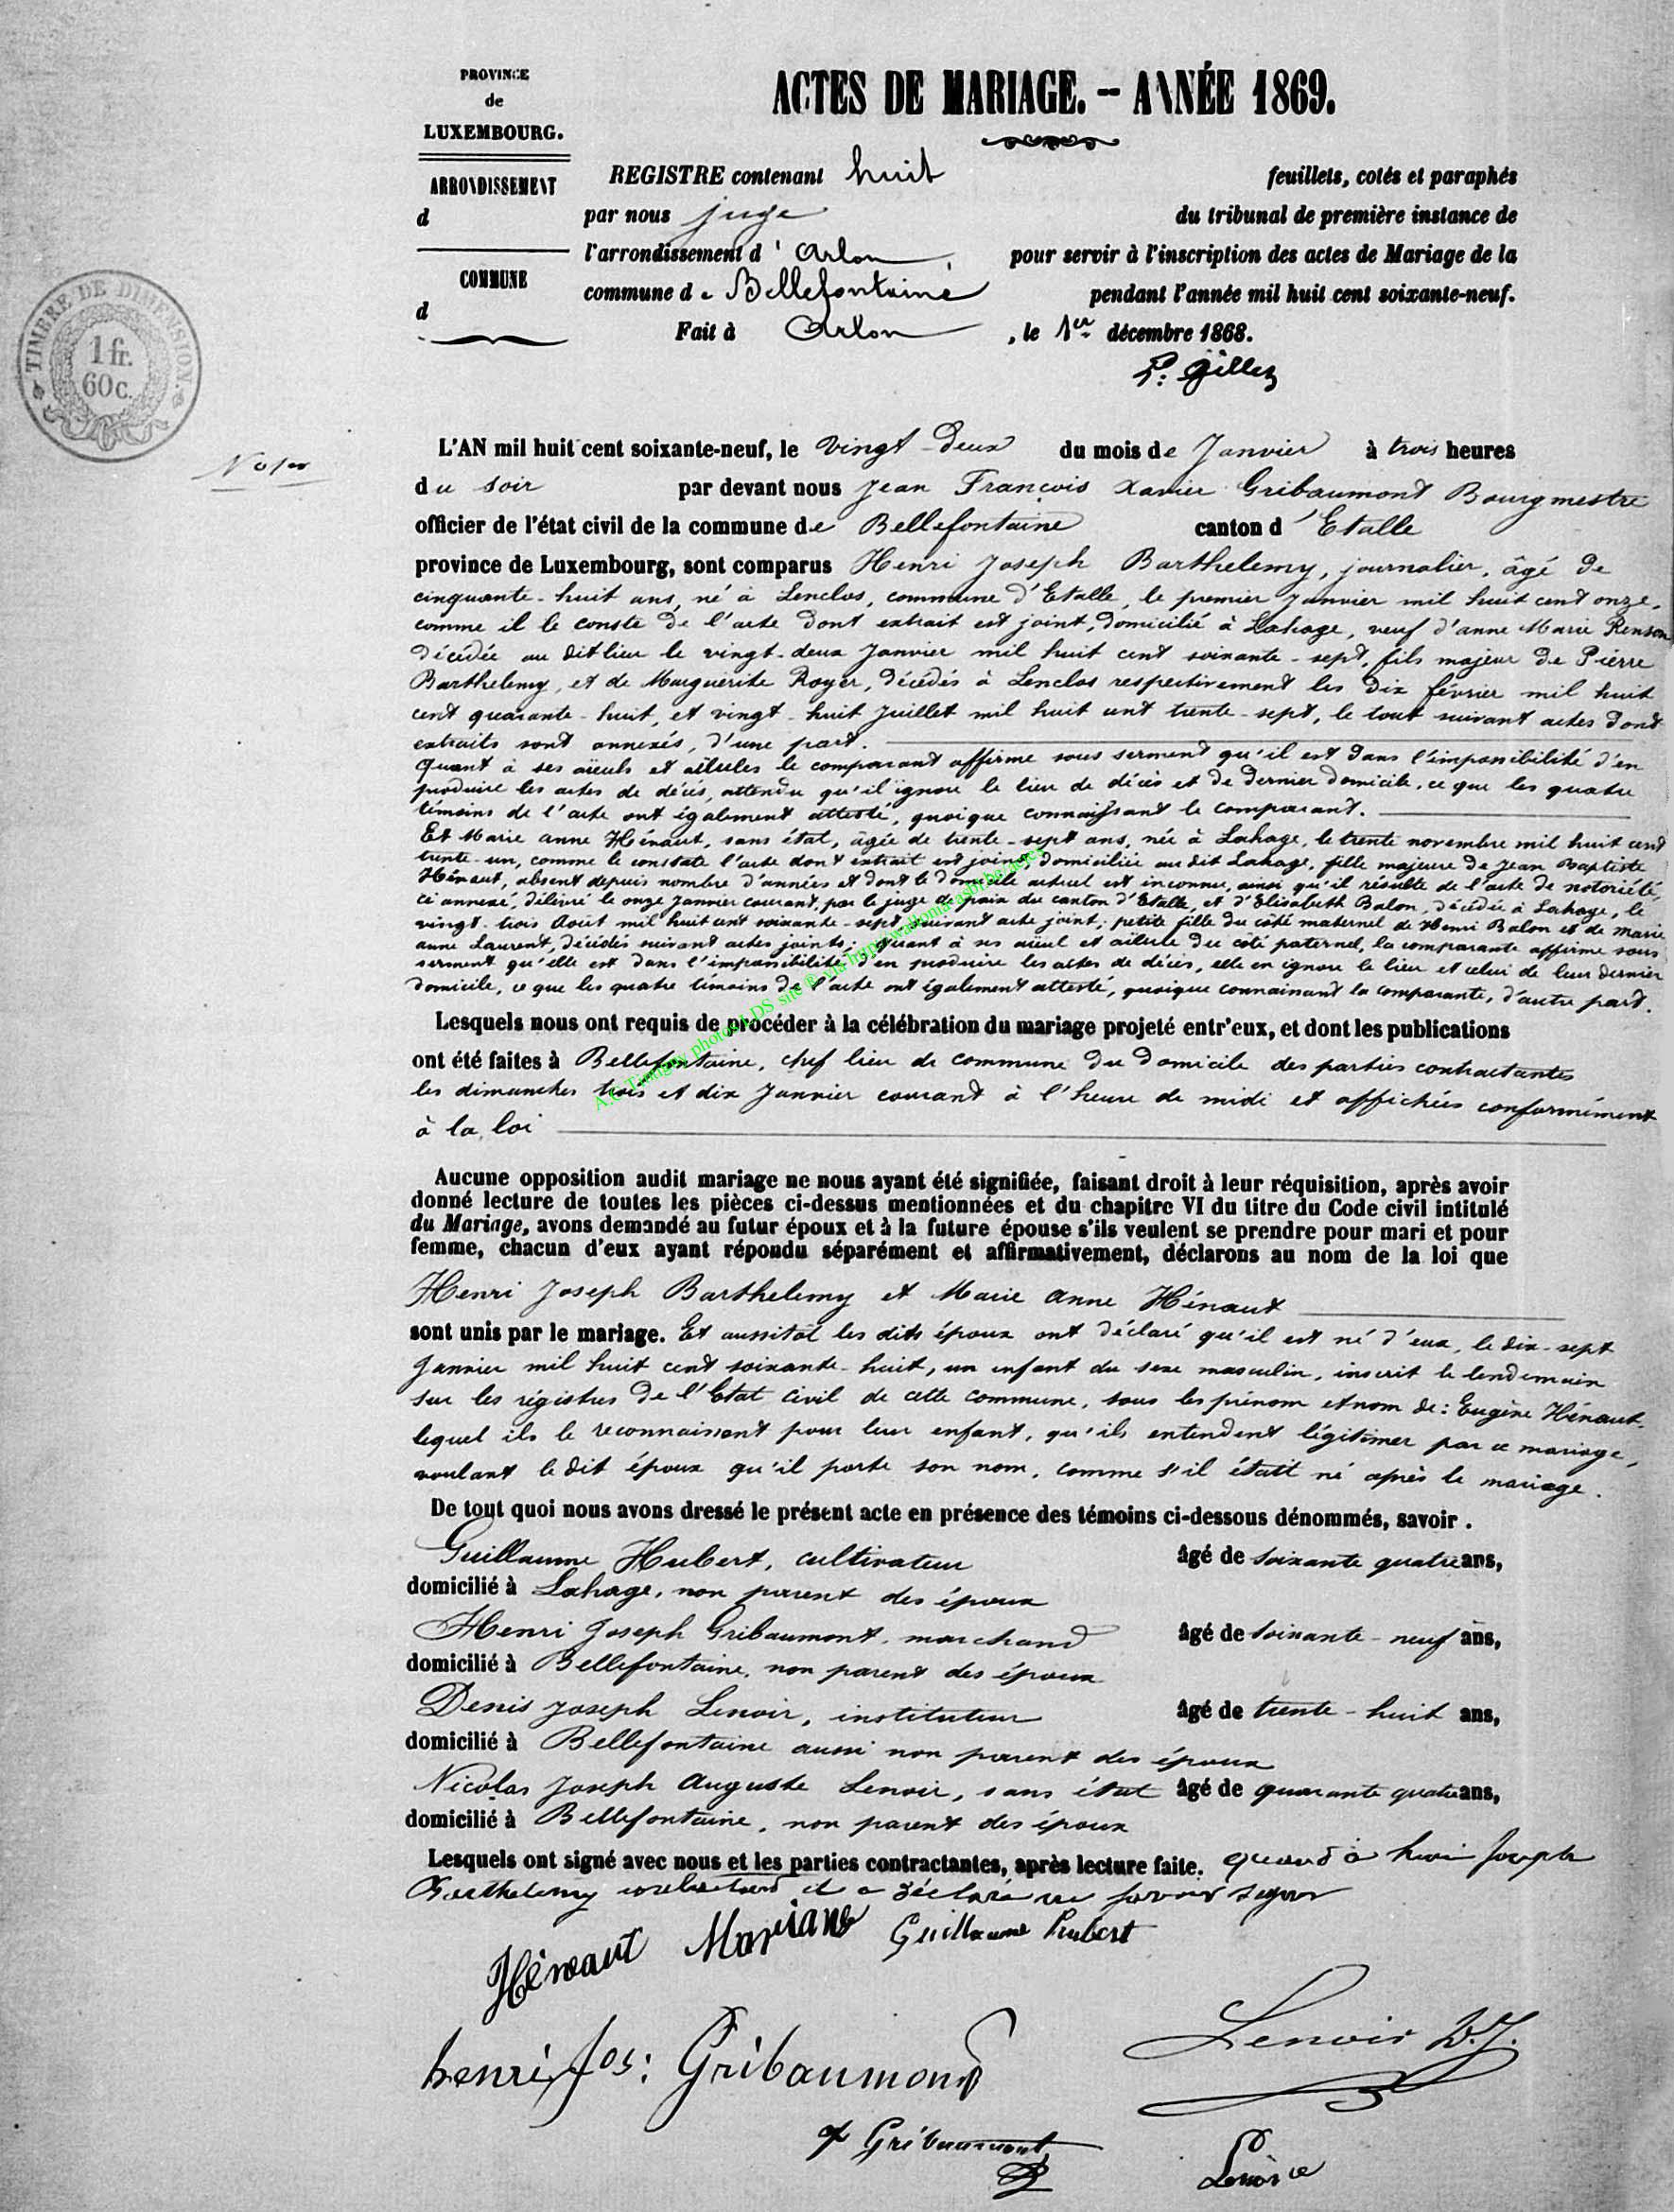 PROVINCE
de
LUXEMBOURG.
ARRONDISSEMENT
d
COMMUNE
d
TIMBRE DE DIMENSION.
1 fr.
60 c.
ACTES DE MARIAGE. - ANNÉE 1869.
REGISTRE contenant huit feuillets, cotés et paraphés
par nous juge du tribunal de première instance de
l'arrondissement d'Arlon, pour servir à l'inscription des actes de Mariage de la
commune de Bellefontaine pendant l'année mil huit cent soixante-neuf.
Fait à Arlon, le 1er décembre 1868.
P: Gilles
L'AN mil huit cent soixante-neuf, le vingt-deux du mois de Janvier à trois heures
du soir par devant nous Jean François Xavier Gribaumont Bourgmestre
officier de l'état civil de la commune de Bellefontaine canton d'Etalle
province de Luxembourg, sont comparus Henri Joseph Barthelemy, journalier, âgé de
cinquante-huit ans, né à Lenclos, commune d'Etalle, le premier Janvier mil huit cent onze,
comme il le conste de l'acte dont extrait est joint, domicilié à Lahage, veuf d'anne Marie Renson
décédée au dit lieu le vingt-deux Janvier mil huit cent soixante-sept, fils majeur de Pierre
Barthelemy, et de Marguerite Royer, décédés à Lenclos respectivement les dix février mil huit
cent quarante-huit, et vingt-huit Juillet mil huit cent trente-sept, le tout suivant actes dont
extraits sont annexés, d'une part.
Quant à ses aïeuls et aïeules le comparant affirme sous serment qu'il est dans l'impossibilité d'en
produire les actes de décès, attendu qu'il ignore le lieu de décès et de dernier domicile, ce que les quatre
témoins de l'acte ont également attesté, quoique connaissant le comparant.
Et Marie anne Hénaut, sans état, âgée de trente-sept ans, née à Lahage, le trente novembre mil huit cent
trente-un, comme le constate l'acte dont extrait est joint, domiciliée au dit Lahage, fille majeure de Jean Baptiste
Hénaut, absent depuis nombre d'années et dont le domicile actuel est inconnu, ainsi qu'il résulte de l'acte de notoriété,
ci annexé, délivré le onze Janvier courant, par le juge de paix du canton d'Etalle, et d'Elisabeth Balon, décédée à Lahage, le
vingt-trois Août mil huit cent soixante-sept, suivant acte joint; petite fille du côté maternel de Henri Balon et de Marie
anne Laurent, décédés suivant actes joints; quant à ses aïeul et aïeule du côté paternel, la comparante affirme sous
serment qu'elle est dans l'impossibilité d'en produire les actes de décès, elle en ignore le lieu et celui de leur dernier
domicile, ce que les quatre témoins de l'acte ont également attesté, quoique connaissant la comparante, d'autre part.
Lesquels nous ont requis de procéder à la célébration du mariage projeté entr'eux, et dont les publications
ont été faites à Bellefontaine, chef lieu de commune du domicile des parties contractantes
les dimanches trois et dix Janvier courant à l'heure de midi et affichées conformément
à la loi
Aucune opposition audit mariage ne nous ayant été signifiée, faisant droit à leur réquisition, après avoir
donné lecture de toutes les pièces ci-dessus mentionnées et du chapitre VI du titre du Code civil intitulé
du Mariage, avons demandé au futur époux et à la future épouse s'ils veulent se prendre pour mari et pour
femme, chacun d'eux ayant répondu séparément et affirmativement, déclarons au nom de la loi que
Henri Joseph Barthelemy et Marie anne Hénaut
sont unis par le mariage. Et aussitôt les dits époux ont déclaré qu'il est né d'eux, le dix-sept
Janvier mil huit cent soixante-huit, un enfant du sexe masculin, inscrit le lendemain
sur les régistres de l'Etat Civil de cette commune, sous les prénom et nom de: Eugène Hénaut
lequel ils le reconnaissent pour leur enfant, qu'ils entendent légitimer par ce mariage,
voulant le dit époux qu'il porte son nom, comme s'il était né après le mariage.
De tout quoi nous avons dressé le présent acte en présence des témoins ci-dessous dénommés, savoir.
Guillaume Hubert, cultivateur âgé de soixante quatre ans,
domicilié à Lahage, non parent des époux
Henri Joseph Gribaumont, marchand âgé de soixante-neuf ans,
domicilié à Bellefontaine, non parent des époux
Denis Joseph Lenoir, instituteur âgé de trente-huit ans,
domicilié à Bellefontaine aussi non parent des époux
Nicolas Joseph Auguste Lenoir, sans état âgé de quarante quatre ans,
domicilié à Bellefontaine, non parent des époux
Lesquels ont signé avec nous et les parties contractantes, après lecture faite. quand à henri Joseph
Barthelemy il a déclaré ne savoir signer
Hénaut Mariane Guillaume Hubert
henri jos: Gribaumont Lenoir D.J.
Gribaumont Lenoir